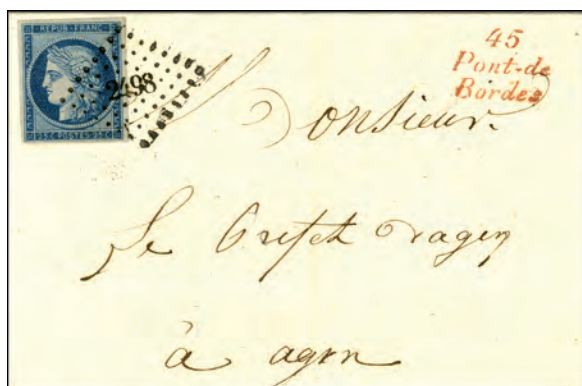 REPUB. FRANC.
25 C. POSTES. 25 C.
2498
45
Pont-de
Bordes
Monsieur.
Le Prefet d'agen
à agen